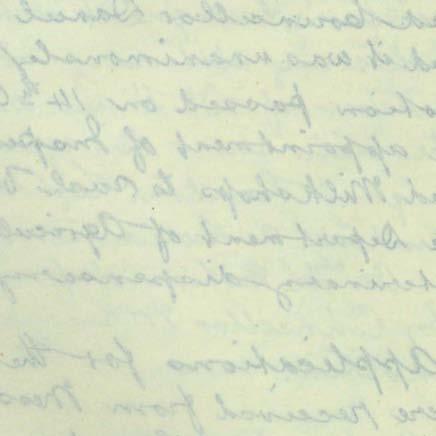 ed Councillor Daniel
ed it was unanimously
otion passed on 14th
appointment of Inspec
ed Milkshops to read
e Department of Agricul
terinary dispensary
Applications for the
ere received from Mess